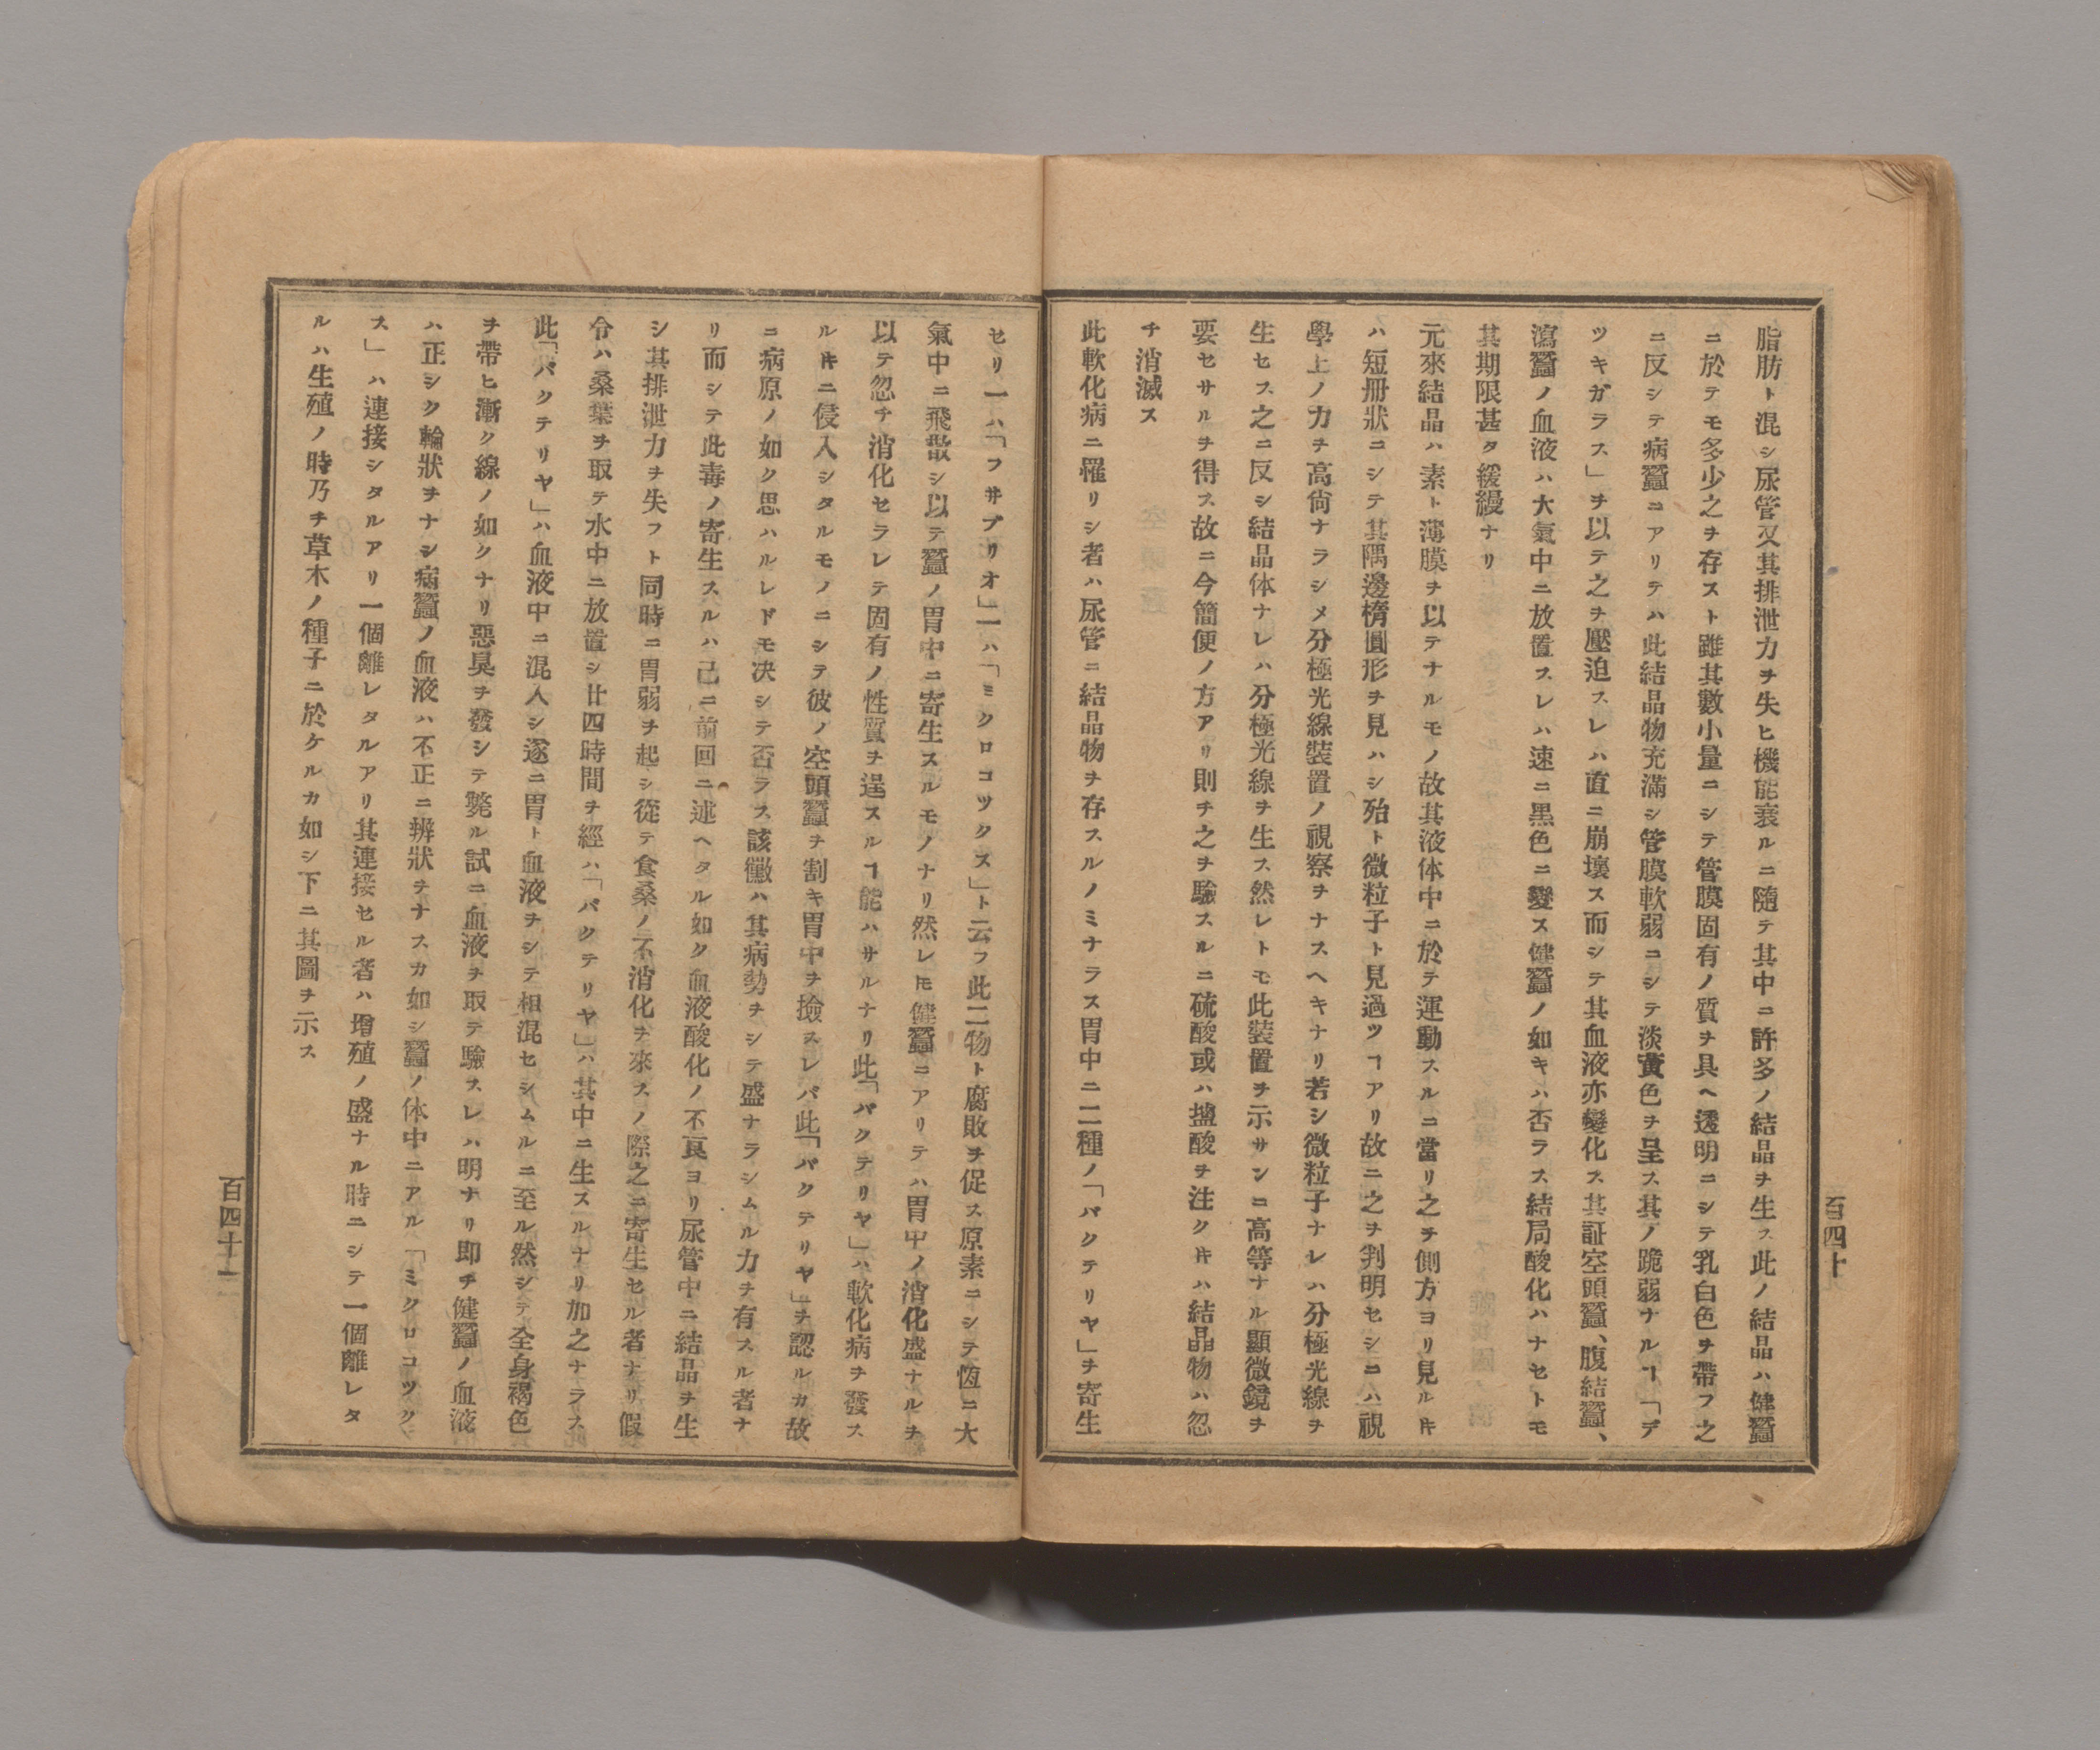 脂肪ト混シ尿管又其排泄力ヲ失ヒ機能衰ルニ隨テ其中ニ許多ノ結晶ヲ生ス此ノ結晶ハ健蠶
ニ於テモ多少之ヲ存スト雖其數小量ニシテ管膜固有ノ質ヲ具ヘ透明ニシテ乳白色ヲ帶フ之
ニ反シテ病蠶ニアリテハ此結晶物充滿シ管膜軟弱ニシテ淡黄色ヲ呈ス其ノ脆弱ナルヿ「デ
ツキガラス」ヲ以テ之ヲ壓迫スレハ直ニ崩壞ス而シテ其血液亦變化ス其証空頭蠶、腹結蠶、
瀉蠶ノ血液ハ大氣中ニ放置スレハ速ニ黑色ニ變ス健蠶ノ如キハ否ラス結局酸化ハナセトモ
其期限甚タ緩縵ナリ
元來結晶ハ素ト薄膜ヲ以テナルモノ故其液体中ニ於テ運動スルニ當リ之ヲ側方ヨリ見ルキ
ハ短册狀ニシテ其隅邊楕圓形ヲ見ハシ殆ト微粒子ト見過ツヿアリ故ニ之ヲ判明セシニハ視
學上ノ力ヲ高尙ナラシメ分極光線裝置ノ視察ヲナスヘキナリ若シ微粒子ナレハ分極光線ヲ
生セス之ニ反シ結晶体ナレハ分極光線ヲ生ス然レトモ此裝置ヲ示サンニ高等ナル顯微鏡ヲ
要セサルヲ得ス故ニ今簡便ノ方アリ則チ之ヲ驗スルニ硫酸或ハ塩酸ヲ注クキハ結晶物ハ忽
チ消滅ス
此軟化病ニ罹リシ者ハ尿管ニ結晶物ヲ存スルノミナラス胃中ニ二種ノ「バクテリヤ」ヲ寄生
百四十
セリ一ハ「フヰブリオ」一ハ「ミクロコツクス」ト云フ此二物ト腐敗ヲ促ス原素ニシテ恆ニ大
氣中ニ飛散シ以テ蠶ノ胃中ニ寄生スルモノナリ然レ𪜈健蠶ニアリテハ胃中ノ消化盛ナルヲ
以テ忽チ消化セラレテ固有ノ性質ヲ逞スルヿ能ハサルナリ此「バクテリヤ」ハ軟化病ヲ發ス
ルキニ侵入シタルモノニシテ彼ノ空頭蠶ヲ割キ胃中ヲ撿スレバ此「バクテリヤ」ヲ認ルカ故
ニ病原ノ如ク思ハルレドモ决シテ否ラス該黴ハ其病勢ヲシテ盛ナラシムル力ヲ有スル者ナ
リ而シテ此毒ノ寄生スルハ己ニ前回ニ述ヘタル如ク血液酸化ノ不良ヨリ尿管中ニ結晶ヲ生
シ其排泄力ヲ失フト同時ニ胃弱ヲ起シ從テ食桑ノ不消化ヲ來スノ際之ニ寄生セル者ナリ假
令ハ桑葉ヲ取テ水中ニ放置シ廿四時間ヲ經ハ「バクテリヤ」ハ其中ニ生スルナリ加之ナラス
此「バクテリヤ」ハ血液中ニ混入シ遂ニ胃ト血液ヲシテ相混セシムルニ至ル然シテ全身褐色
ヲ帶ヒ漸ク線ノ如クナリ惡臭ヲ發シテ斃ル試ニ血液ヲ取テ驗スレハ明ナリ即チ健蠶ノ血液
ハ正シク輪狀ヲナシ病蠶ノ血液ハ不正ニ辨狀ヲナスカ如シ蠶ノ体中ニアル「ミクロコツク
ス」ハ連接シタルアリ一個離レタルアリ其連接セル者ハ增殖ノ盛ナル時ニシテ一個離レタ
ルハ生殖ノ時乃チ草木ノ種子ニ於ケルカ如シ下ニ其圖ヲ示ス
百四十一